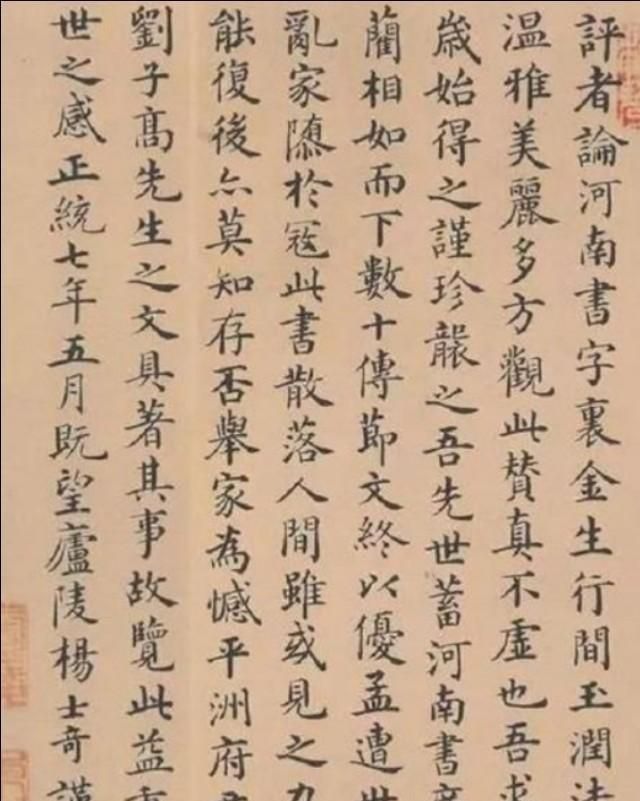 評者論河南書字裏金生行間玉潤法
温雅美麗多方觀此賛真不虛也吾求
歳始得之謹珍襲之吾先世蓄河南書
藺相如而下數十傳節文終以優孟遭世
亂家隳於冦此書散落人間雖或見之力
能復後亦莫知存否舉家為憾平洲府君
劉子髙先生之文具著其事故覽此益重
世之感正統七年五月既望廬陵楊士奇謹